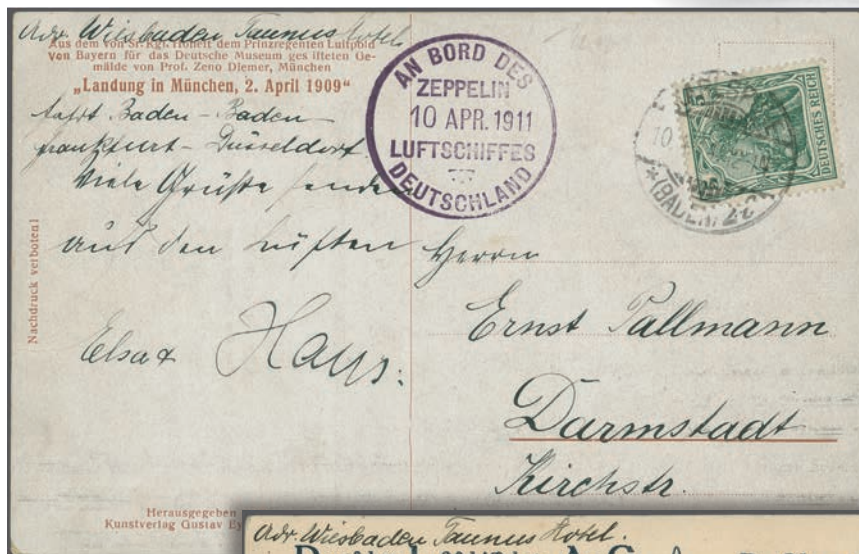 Adr. Wiesbaden Taunus Hotel.
Aus dem von Sr. Kgl. Hoheit dem Prinzregenten Luitpold
von Bayern für das Deutsche Museum gestifteten Ge-
mälde von Prof. Zeno Diemer, München
„Landung in München, 2. April 1909“
Fahrt Baden-Baden
Frankfurt - Düsseldorf.
Viele Grüße sendet
aus den Lüften
Elsa
Nachdruck verboten!
Herausgegeben
Kunstverlag Gustav
AN BORD DES
ZEPPELIN
10 APR. 1911
LUFTSCHIFFES
DEUTSCHLAND
DEUTSCHES REICH
10
*(BADEN) 2c
Herrn
Ernst Pallmann
Darmstadt
Kirchstr.
Adr. Wiesbaden Taunus Hotel.